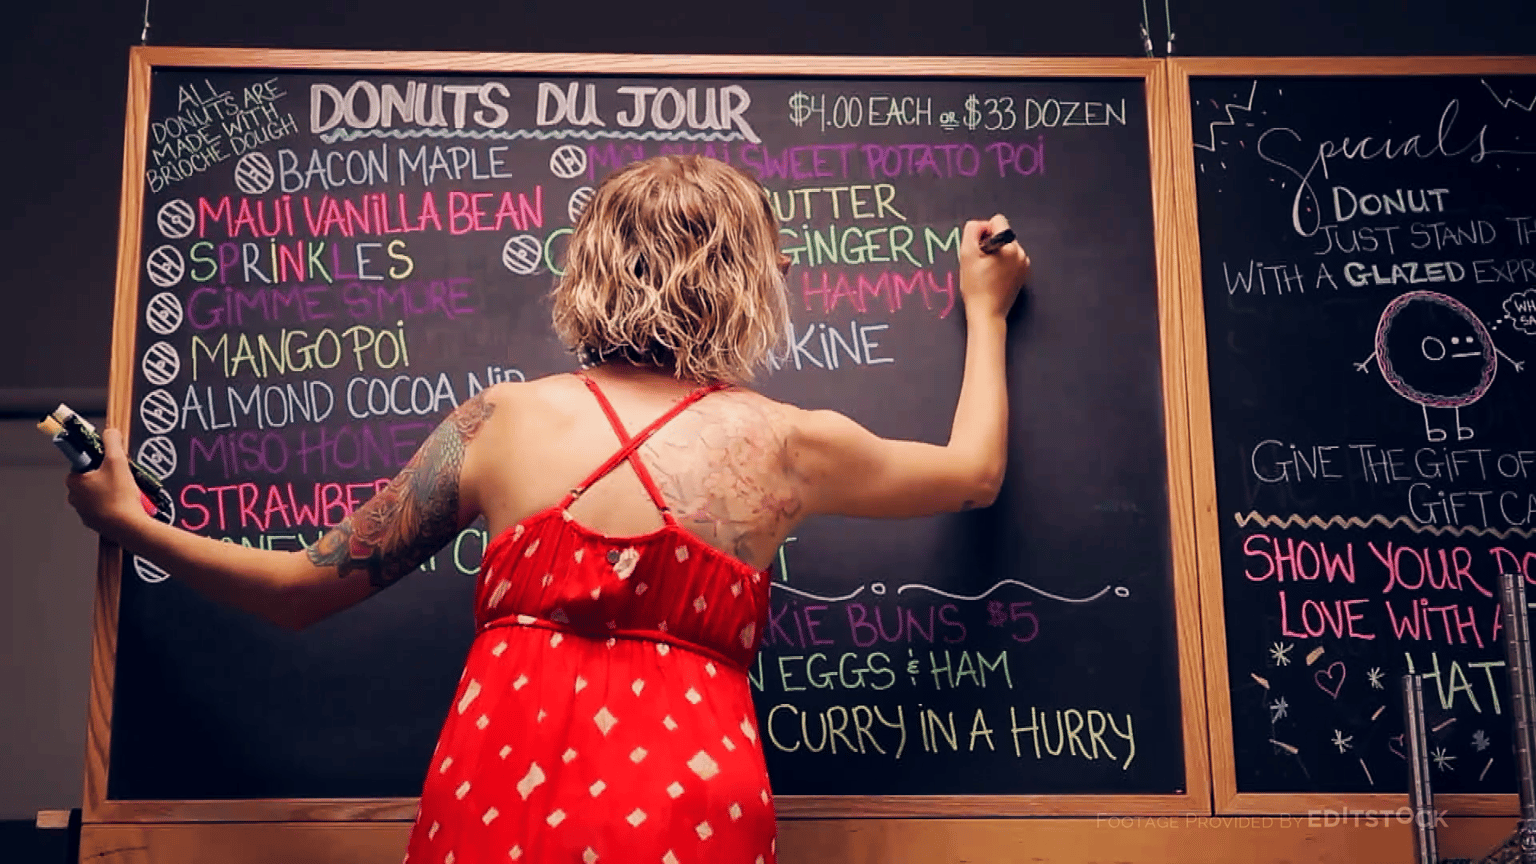 ALL
DONUTS ARE
MADE WITH
BRIOCHE DOUGH
DONUTS DU JOUR
$4.00 EACH OR $33 DOZEN
BACON MAPLE
MAUI VANILLA BEAN
SPRINKLES
GIMME S'MORE
MANGO POI
ALMOND COCOA NIB
MISO HONEY
STRAWBER
SWEET POTATO POI
UTTER
GINGER M
HAMMY
KINE
KIE BUNS $5
EGGS & HAM
CURRY IN A HURRY
Specials
DONUT
JUST STAND TH
WITH A GLAZED EXPR
GIVE THE GIFT OF
GIFT CA
SHOW YOUR DO
LOVE WITH A
HAT
FOOTAGE PROVIDED BY EDITSTOCK